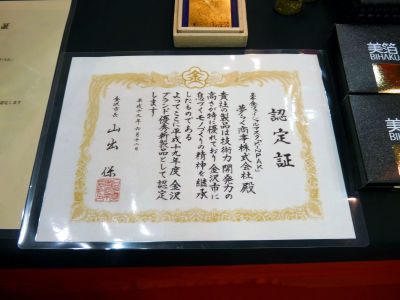 認定証
夢らく商事株式会社 殿
貴社の製品は技術力開発力の
高さが特に優れており金沢市に
息づくモノづくりの精神を継承
したものである
よってここに平成十九年度金沢
ブランド優秀新製品として認定
します
金沢市長 山出 保
金
証
美箔
BIHAKU
美箔
BIHAKU